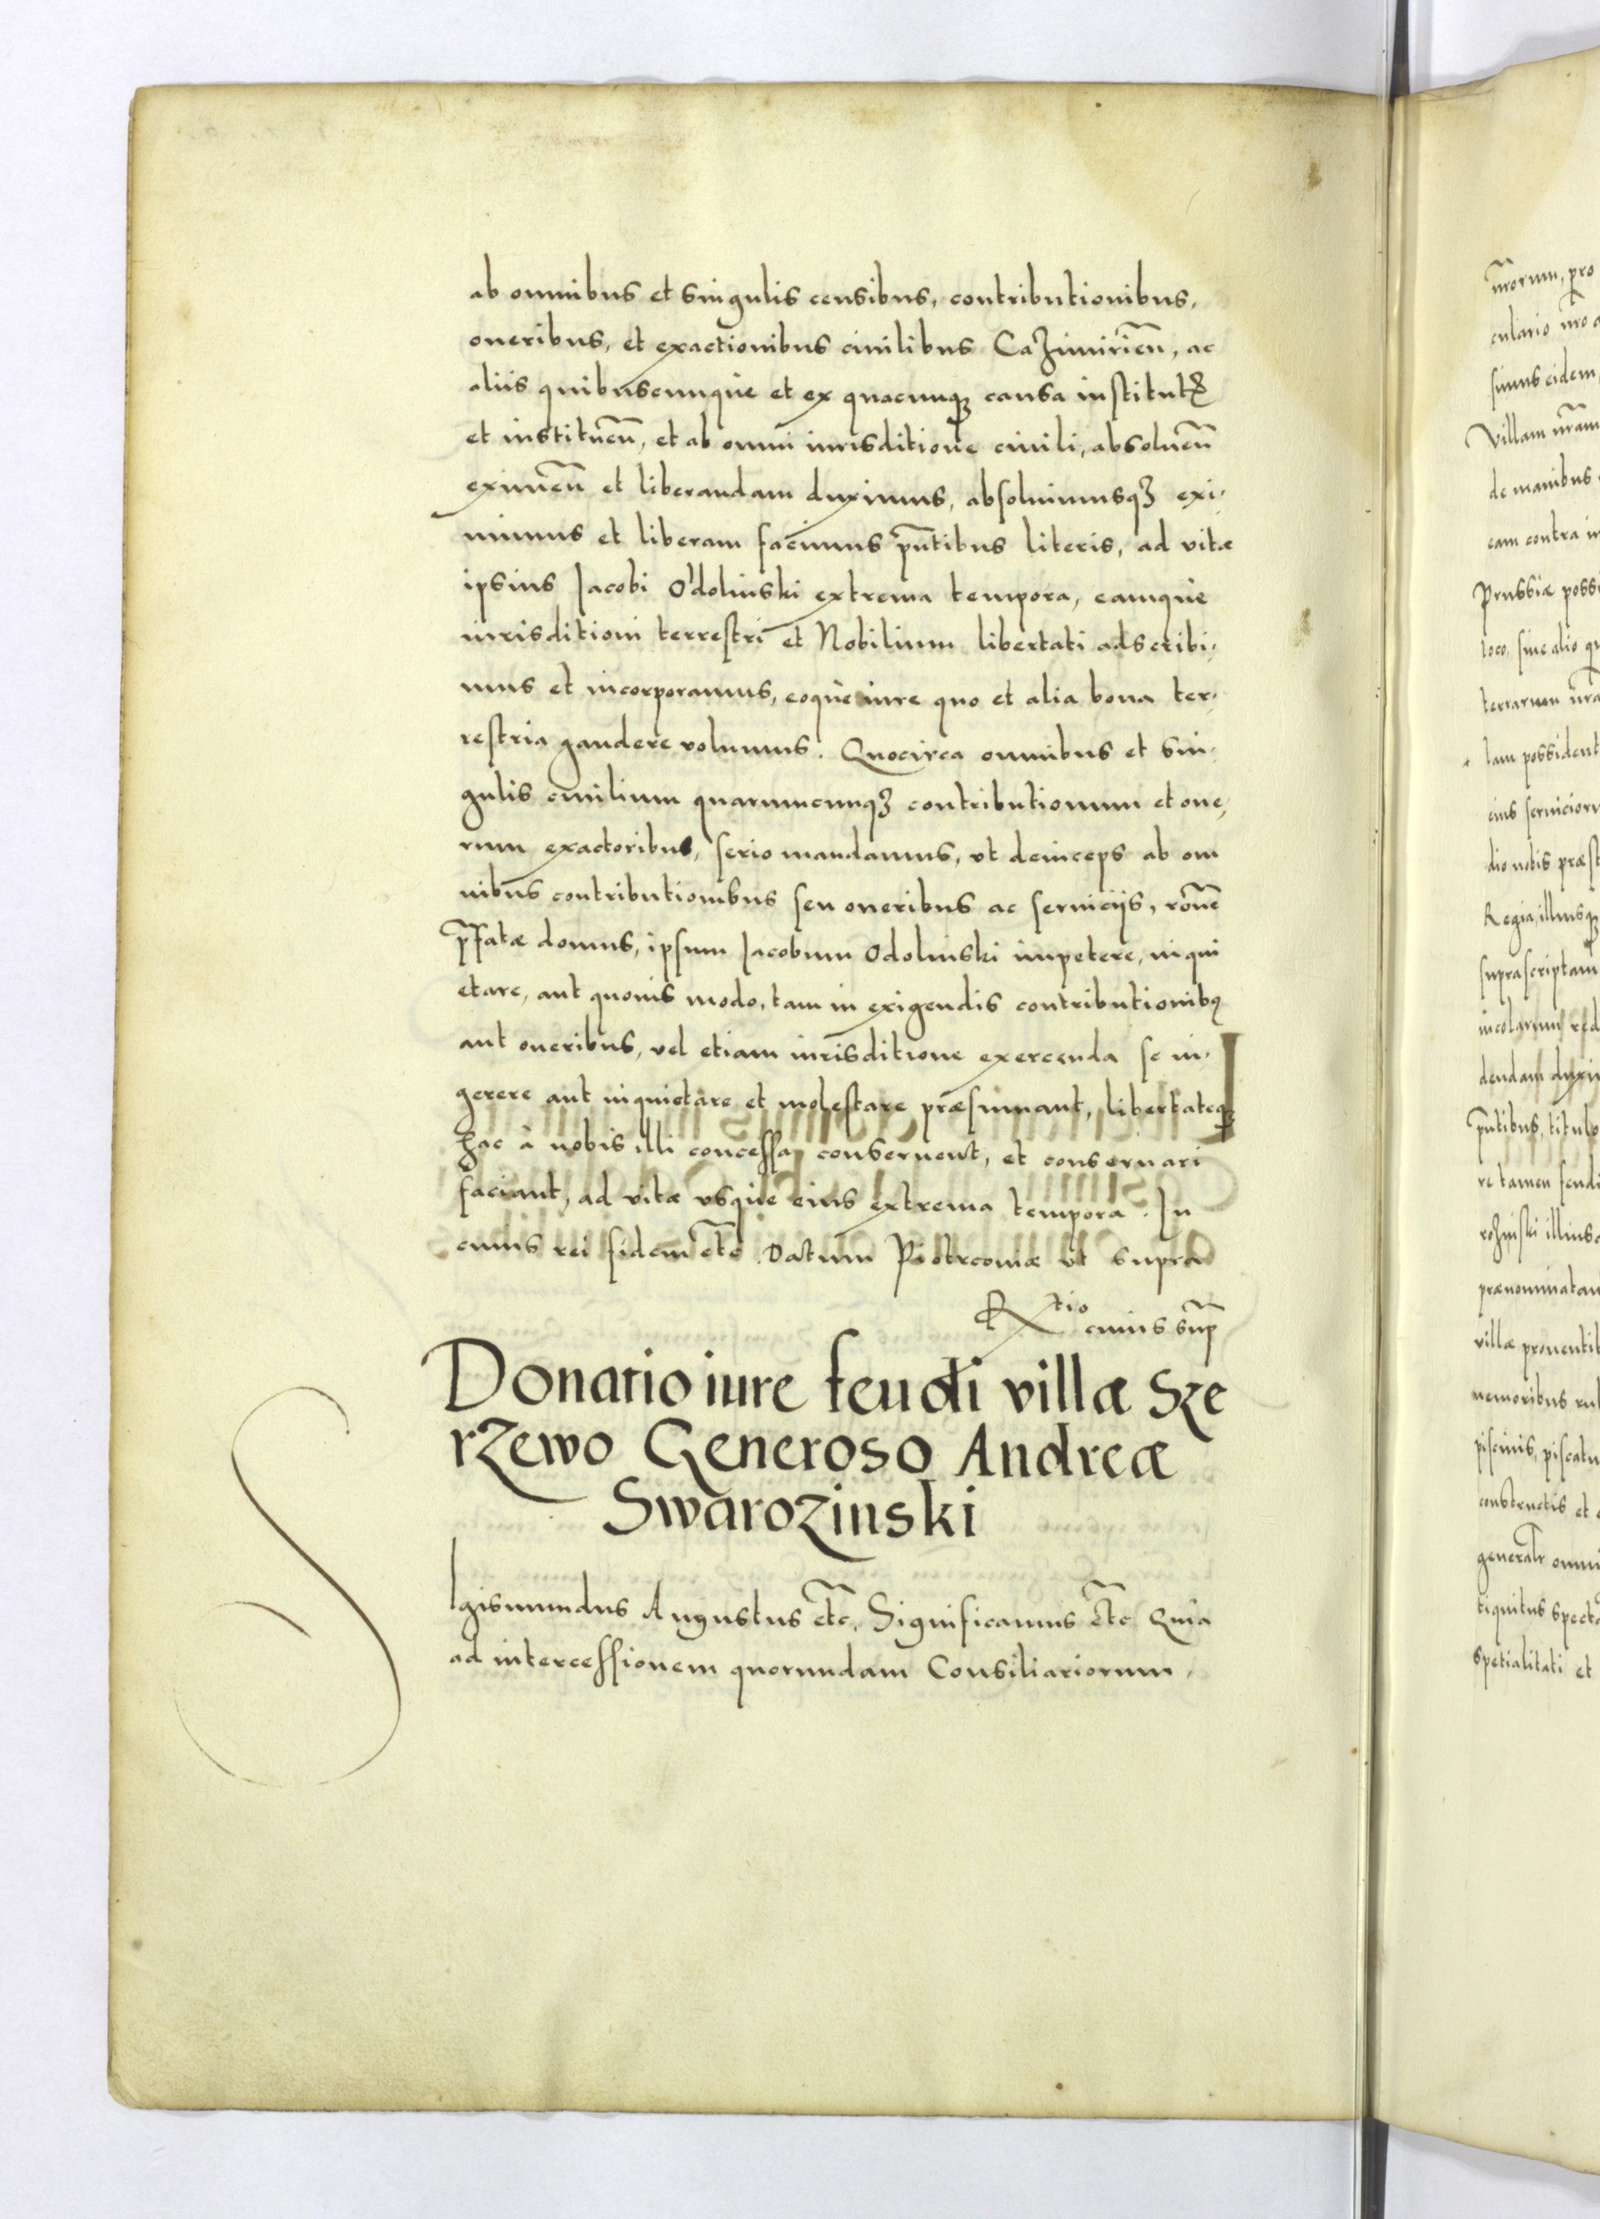 ab omnibus et singulis censibus, contributionibus,
oneribus, et exactionibus ciuilibus Cazimirien̄, ac
aliis quibuscunque et ex quacunqꝫ causa institutꝭ
et instituen̄, et ab omni iurisditione ciuili, absoluen̄
eximen̄ et liberandam duximus, absoluimusqꝫ exi-
mimus et liberam facimus pn̄tibus literis, ad vitæ
ipsius Jacobi Odolinski extrema tempora, eamque
iurisditioni terrestri et Nobilium libertati adscribi-
mus et incorporamus, eoque iure quo et alia bona ter-
restria gaudere volumus. Quocirca omnibus et sin-
gulis ciuilium quarumcunqꝫ contributionum et one-
rum exactoribus, serio mandamus, vt deinceps ab om
nibus contributionibus seu oneribus ac seruiciis, rōne
p̄fatæ domus, ipsum Jacobum Odolinski impetere, inqui
etare, aut quouis modo, tam in exigendis contributionibꝰ
aut oneribus, vel etiam iurisditione exercenda se in-
gerere aut inquietare et molestare præsumant, libertateqꝫ
hac à nobis illi concessa conseruent, et conseruari
faciant, ad vitæ vsque eius extrema tempora. In
cuius rei fidem etc̄. Datum Piotrcouiæ vt supra
Rtio cuius sup̄
Donatio iure feudi villæ Sze
rzewo Generoso Andreæ
Swarozinski
S
Igismundus Augustus etc̄. Significamus etc̄ Quia
ad intercessionem quorundam Consiliariorum,
nr̄orum, pro
culario nr̄o a
simus eidem
Villam nr̄am
de manibus
eam contra in
Prussiæ possi
loco, siue alio
terrarum nr̄a
lam possident
eius seruicioru
dio nobis præst
Regia, illiusqꝫ
suprascriptam
incolarum red
dendam duxi
pn̄tibus, titulo
re tamen feudi
rozinski illius
prænominatam
villæ prouentib
nemoribus rub
piscinis, piscatu
constructis et
generalr̄ omni
tiquitus specta
spetialitati et